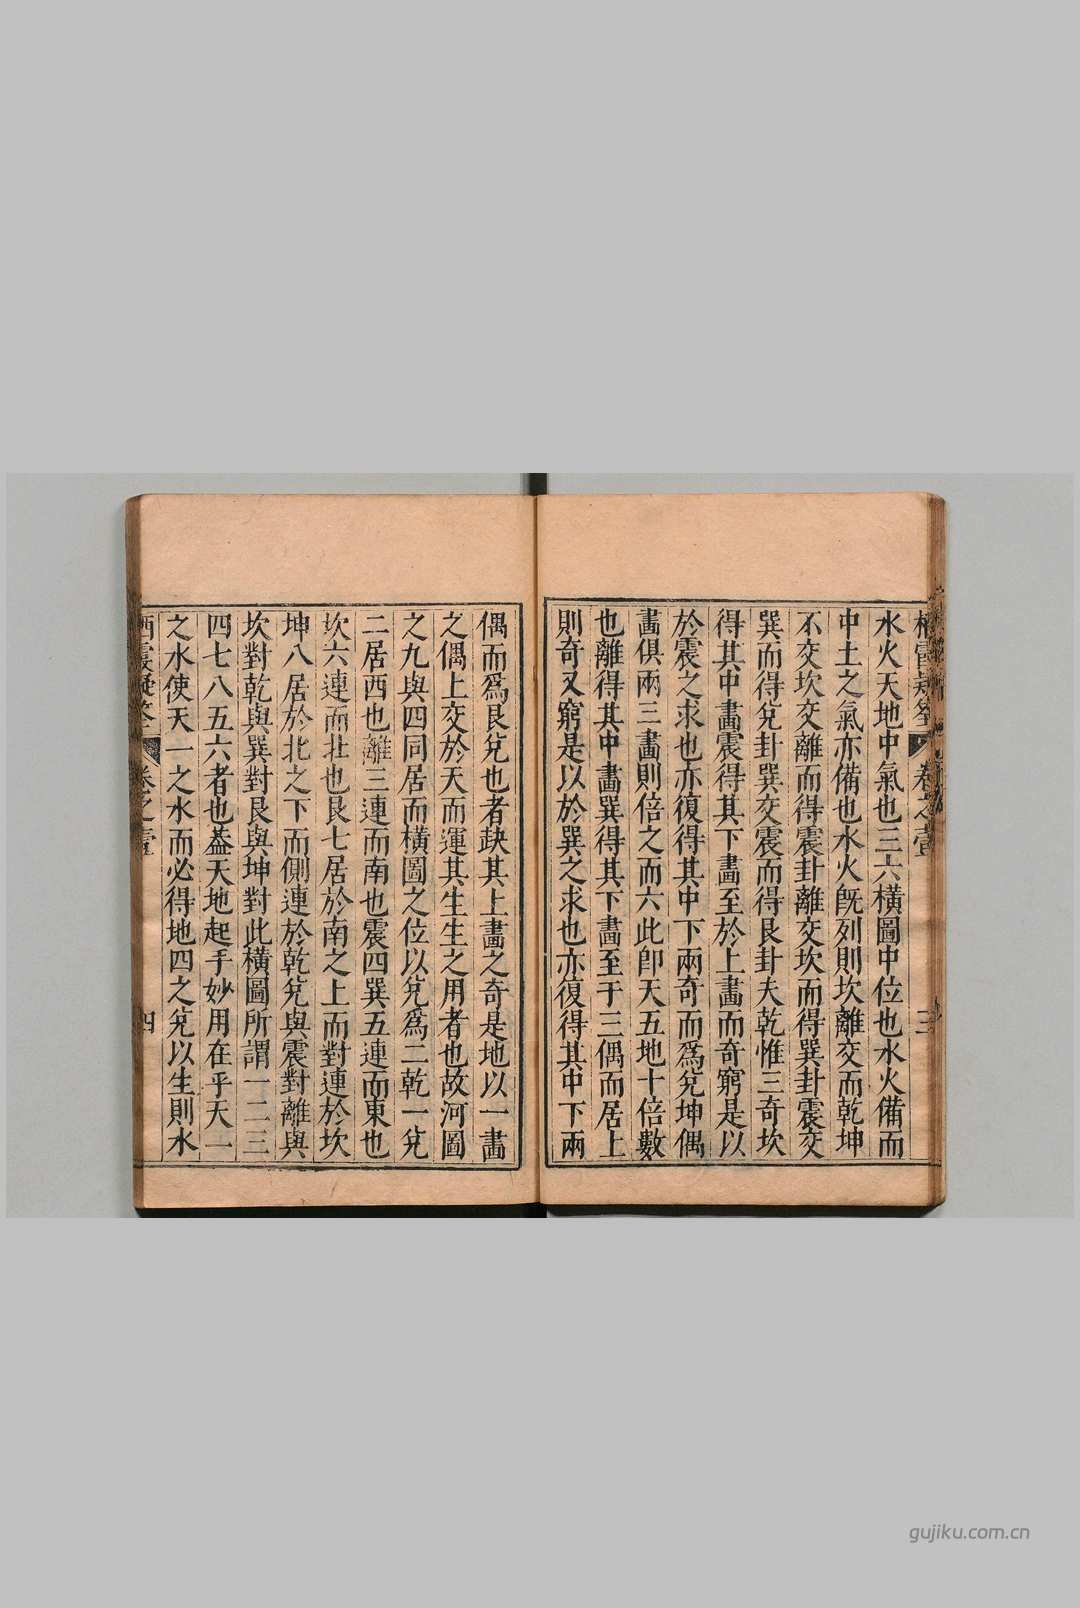 水火天地中氣也三六橫圖中位也水火備而
中土之氣亦備也水火旣列則坎離交而乾坤
不交坎交離而得震卦離交坎而得巽卦震交
巽而得兌卦巽交震而得艮卦夫乾惟三奇坎
得其中畫震得其下畫至於上畫而奇窮是以
於震之求也亦復得其中下兩奇而爲兌坤偶
畫俱兩三畫則倍之而六此卽天五地十倍數
也離得其中畫巽得其下畫至于三偶而居上
則奇又窮是以於巽之求也亦復得其中下兩
偶而爲艮兌也者缺其上畫之奇是地以一畫
之偶上交於天而運其生生之用者也故河圖
之九與四同居而橫圖之位以兌爲二乾一兌
二居西也離三連而南也震四巽五連而東也
坎六連而北也艮七居於南之上而對連於坎
坤八居於北之下而側連於乾兌與震對離與
坎對乾與巽對艮與坤對此橫圖所謂一二三
四七八五六者也葢天地起手妙用在乎天一
之水使天一之水而必得地四之兌以生則水
卷之壹
四
卷之壹
三
gujiku.com.cn